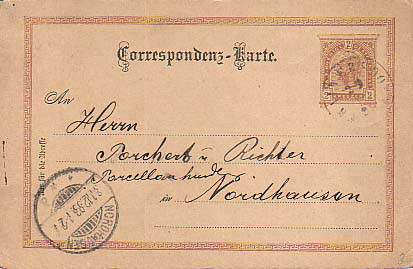 Correspondenz-Karte.
2 2
An
Herrn
Porchert u Richter
Porcellan
in Nordhausen
Nur für die Adresse
NORDHAUSEN
31.12.93. 1-2 N